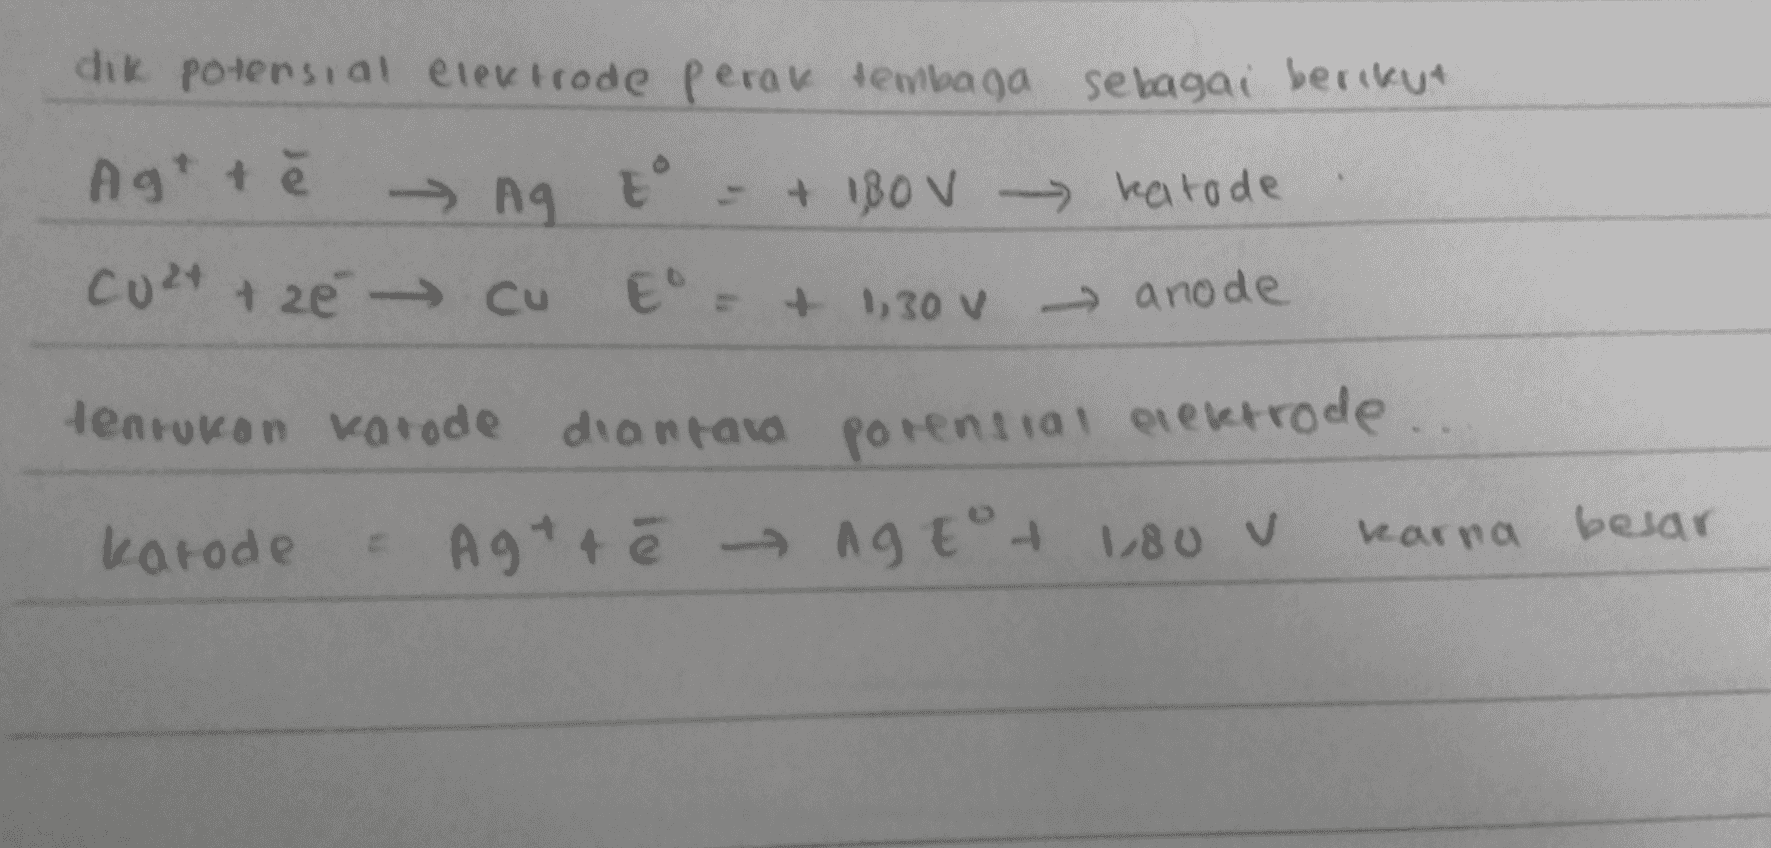 dik potensial elektrode perak tembaga sebagai berikut
Ag⁺ + ē → Ag E⁰ = + 1,80 V → katode
Cu²⁺ + 2e⁻ → Cu E⁰ = + 1,30 V → anode
tentukan katode diantara potensial elektrode...
katode = Ag⁺ + ē → Ag E⁰ + 1,80 V karna besar